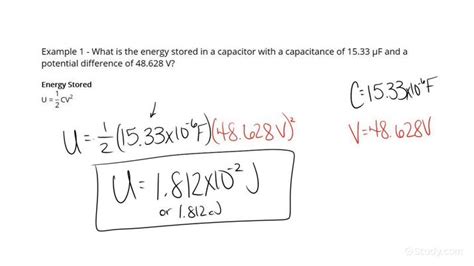 Example 1 - What is the energy stored in a capacitor with a capacitance of 15.33 µF and a
potential difference of 48.628 V?
Energy Stored
U = 1/2 CV²
C=15.33x10⁻⁶F
V=48.628V
U = 1/2 (15.33x10⁻⁶F)(48.628V)²
U = 1.812x10⁻² J
or 1.812cJ
Study.com